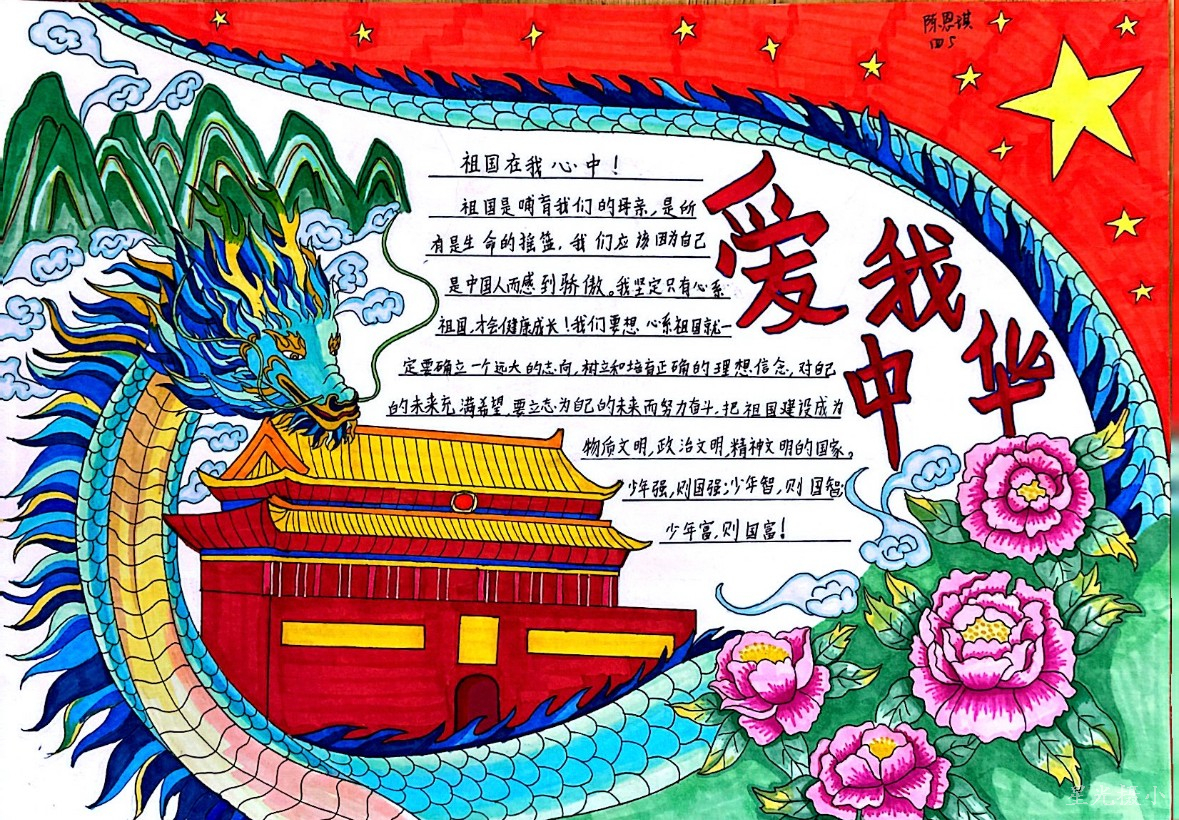 陈恩琪
四5
爱我
中华
祖国在我心中！
祖国是哺育我们的母亲，是所
有是生命的摇篮，我们应该因为自己
是中国人而感到骄傲。我坚定只有心系
祖国，才会健康成长！我们要想心系祖国就一
定要确立一个远大的志向，树立和培育正确的理想信念，对自己
的未来充满希望，要立志为自己的未来而努力奋斗，把祖国建设成为
物质文明，政治文明，精神文明的国家。
少年强，则国强；少年智，则国智；
少年富，则国富！